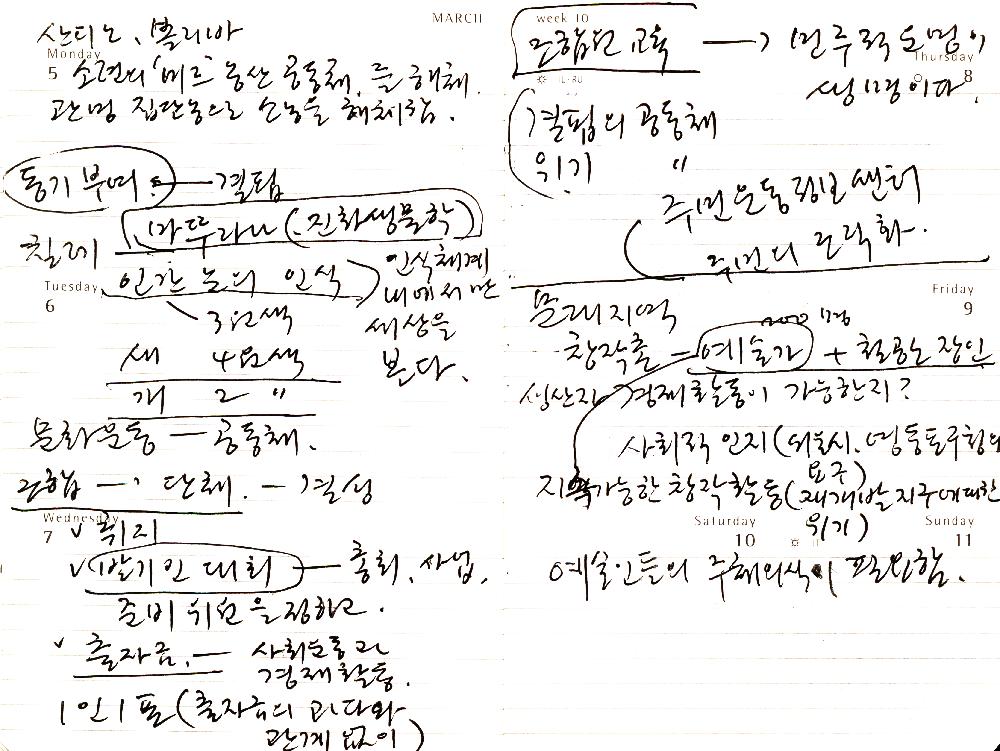 MARCH
산티노, 볼리바
Monday
5 소련의 '미르' 농산 공동체, 를 해체.
관명 집단농으로 소농을 해체함.
동기 부여. — 결핍
마뚜라나 (진화생물학)
칠레
인간 눈의 인식
인식체계
내에서만
세상을
본다.
Tuesday
6
3원색
새 4원색
개 2 〃
문화운동 — 공동체.
조합 → 단체. – 결성
Wednesday
7 ∨ 취지
∨ 발기인 대회 — 총회, 사업,
준비 위원을 정하고.
∨ 출자금. — 사회운동과
경제활동.
1인 1표 (출자금의 과다와
관계 없이)
week 10
조합원 교육 → 민주적 운영이
Thursday
8
생명이다.
결핍의 공동체
위기 〃
주민운동정보센터
주민의 조직화.
Friday
9
문래지역
창작촌 – 예술가 + 철공소 장인
200명
생산자 경제활동이 가능한지?
사회적 인지 (
지속가능한 창작활동 (재개발 지구에 대한
요구
위기)
Saturday
10
Sunday
11
예술인들의 주체의식이 필요함.